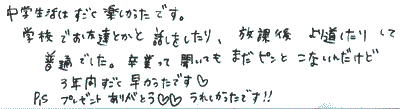 中学生活はすごく楽しかったです。
学校でお友達とかと話しをしたり、放課後より道したりして
普通でした。卒業って聞いてもまだピンとこないんだけど
3年間すごく早かったです♡
P.S プレゼントありがとう♡♡うれしかったです!!